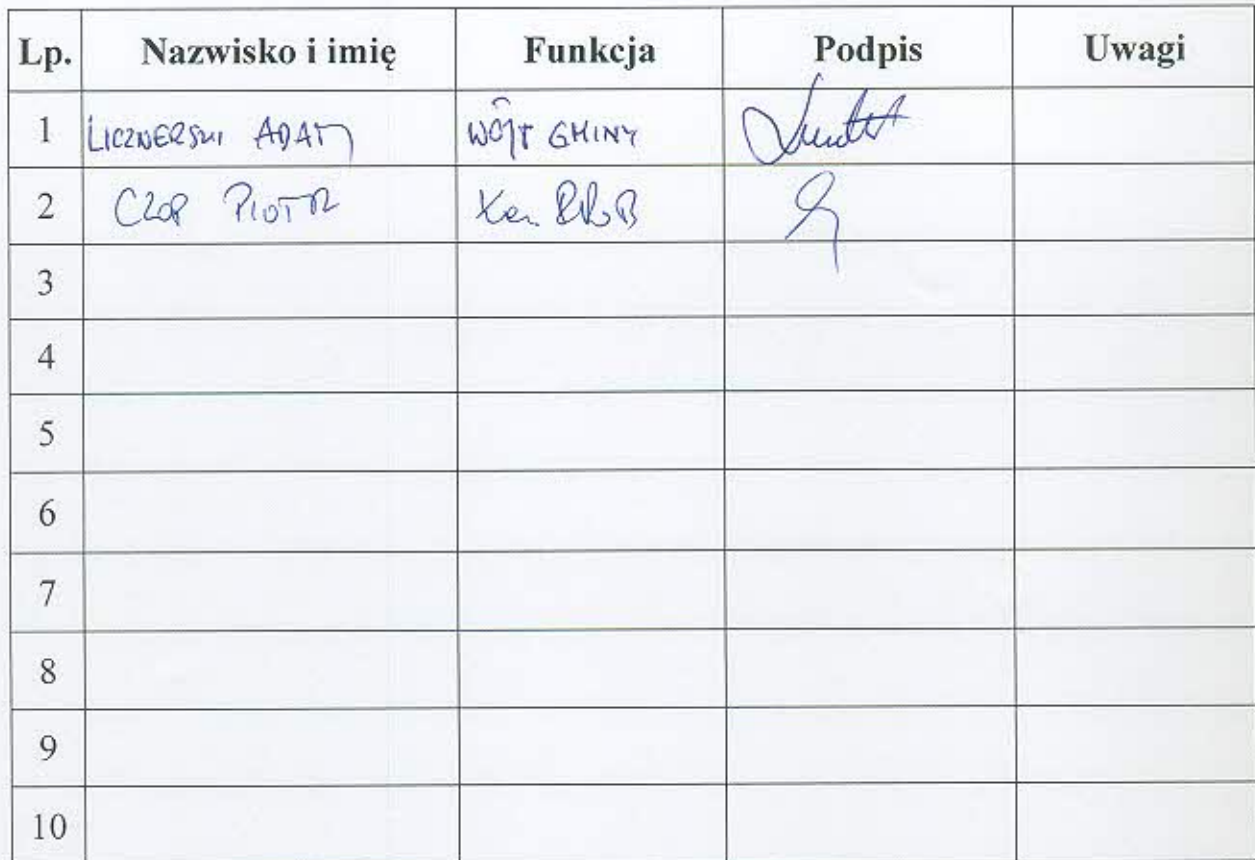 Lp. Nazwisko i imię Funkcja Podpis Uwagi
1 LICZNERSKI ADAM WÓJT GMINY
2 CZOP PIOTR
3
4
5
6
7
8
9
10